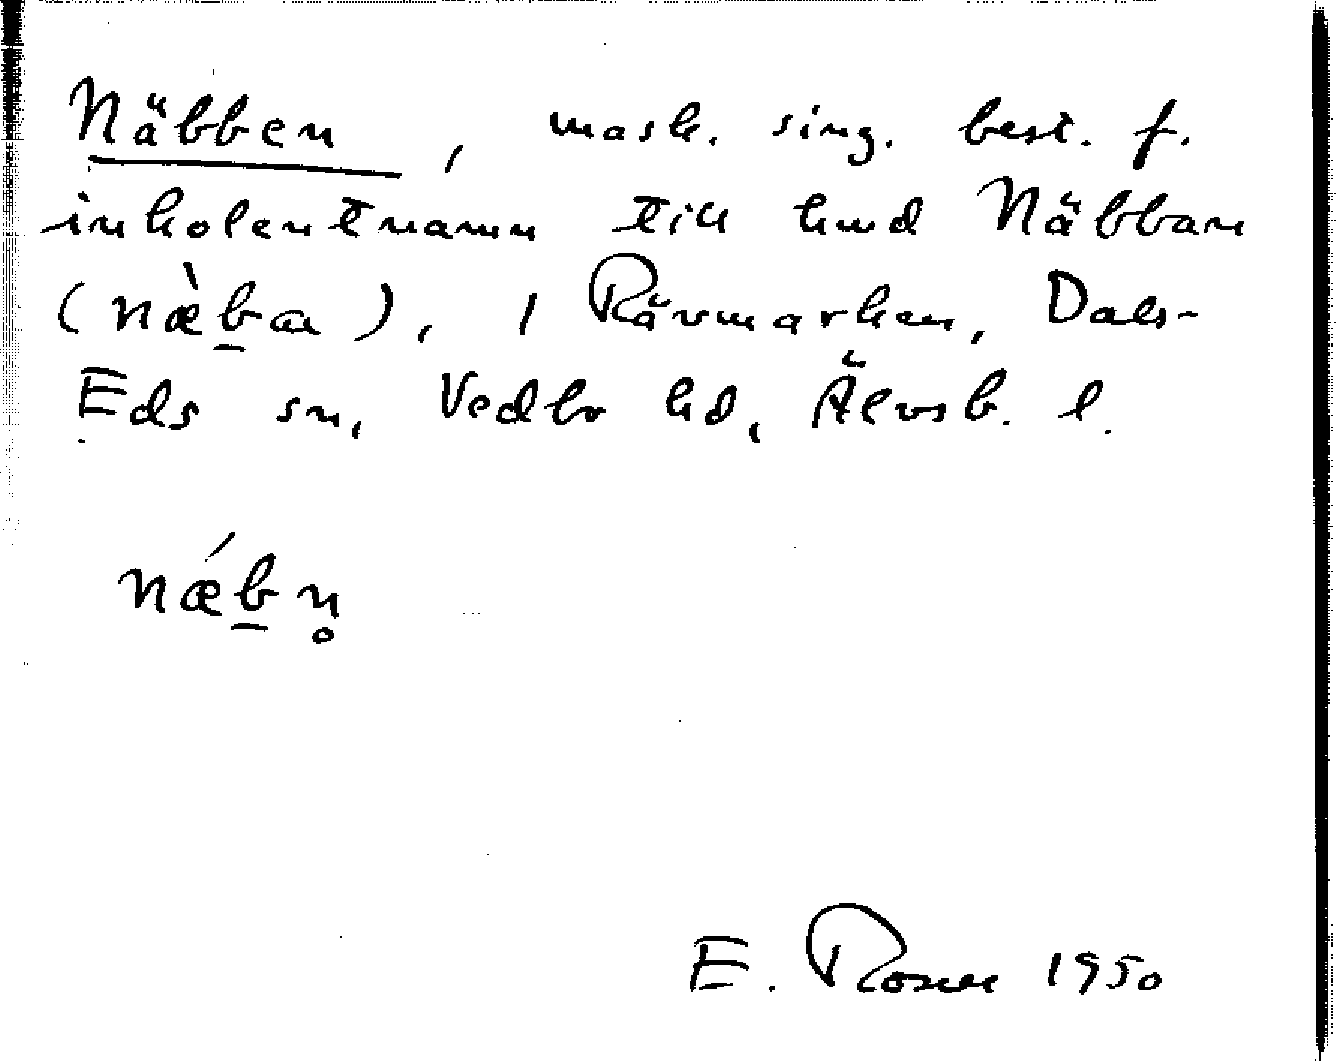 Näbben, mask. sing. best. f.
inkolentnamn till hmd Näbban
(næ̀ḇa), 1 Rävmarken, Dals-
Eds sn, Vedbo hd, Älvsb. l.
nǽḇn̥
E. Rosell 1950